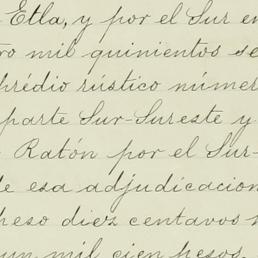 Etla, y por el Sur en
ro mil quinientos se
prédio rústico númer
parte Sur-Sureste y
Ratón por el Sur-
de esa adjudicacion
peso diez centavos
un mil cien pesos.